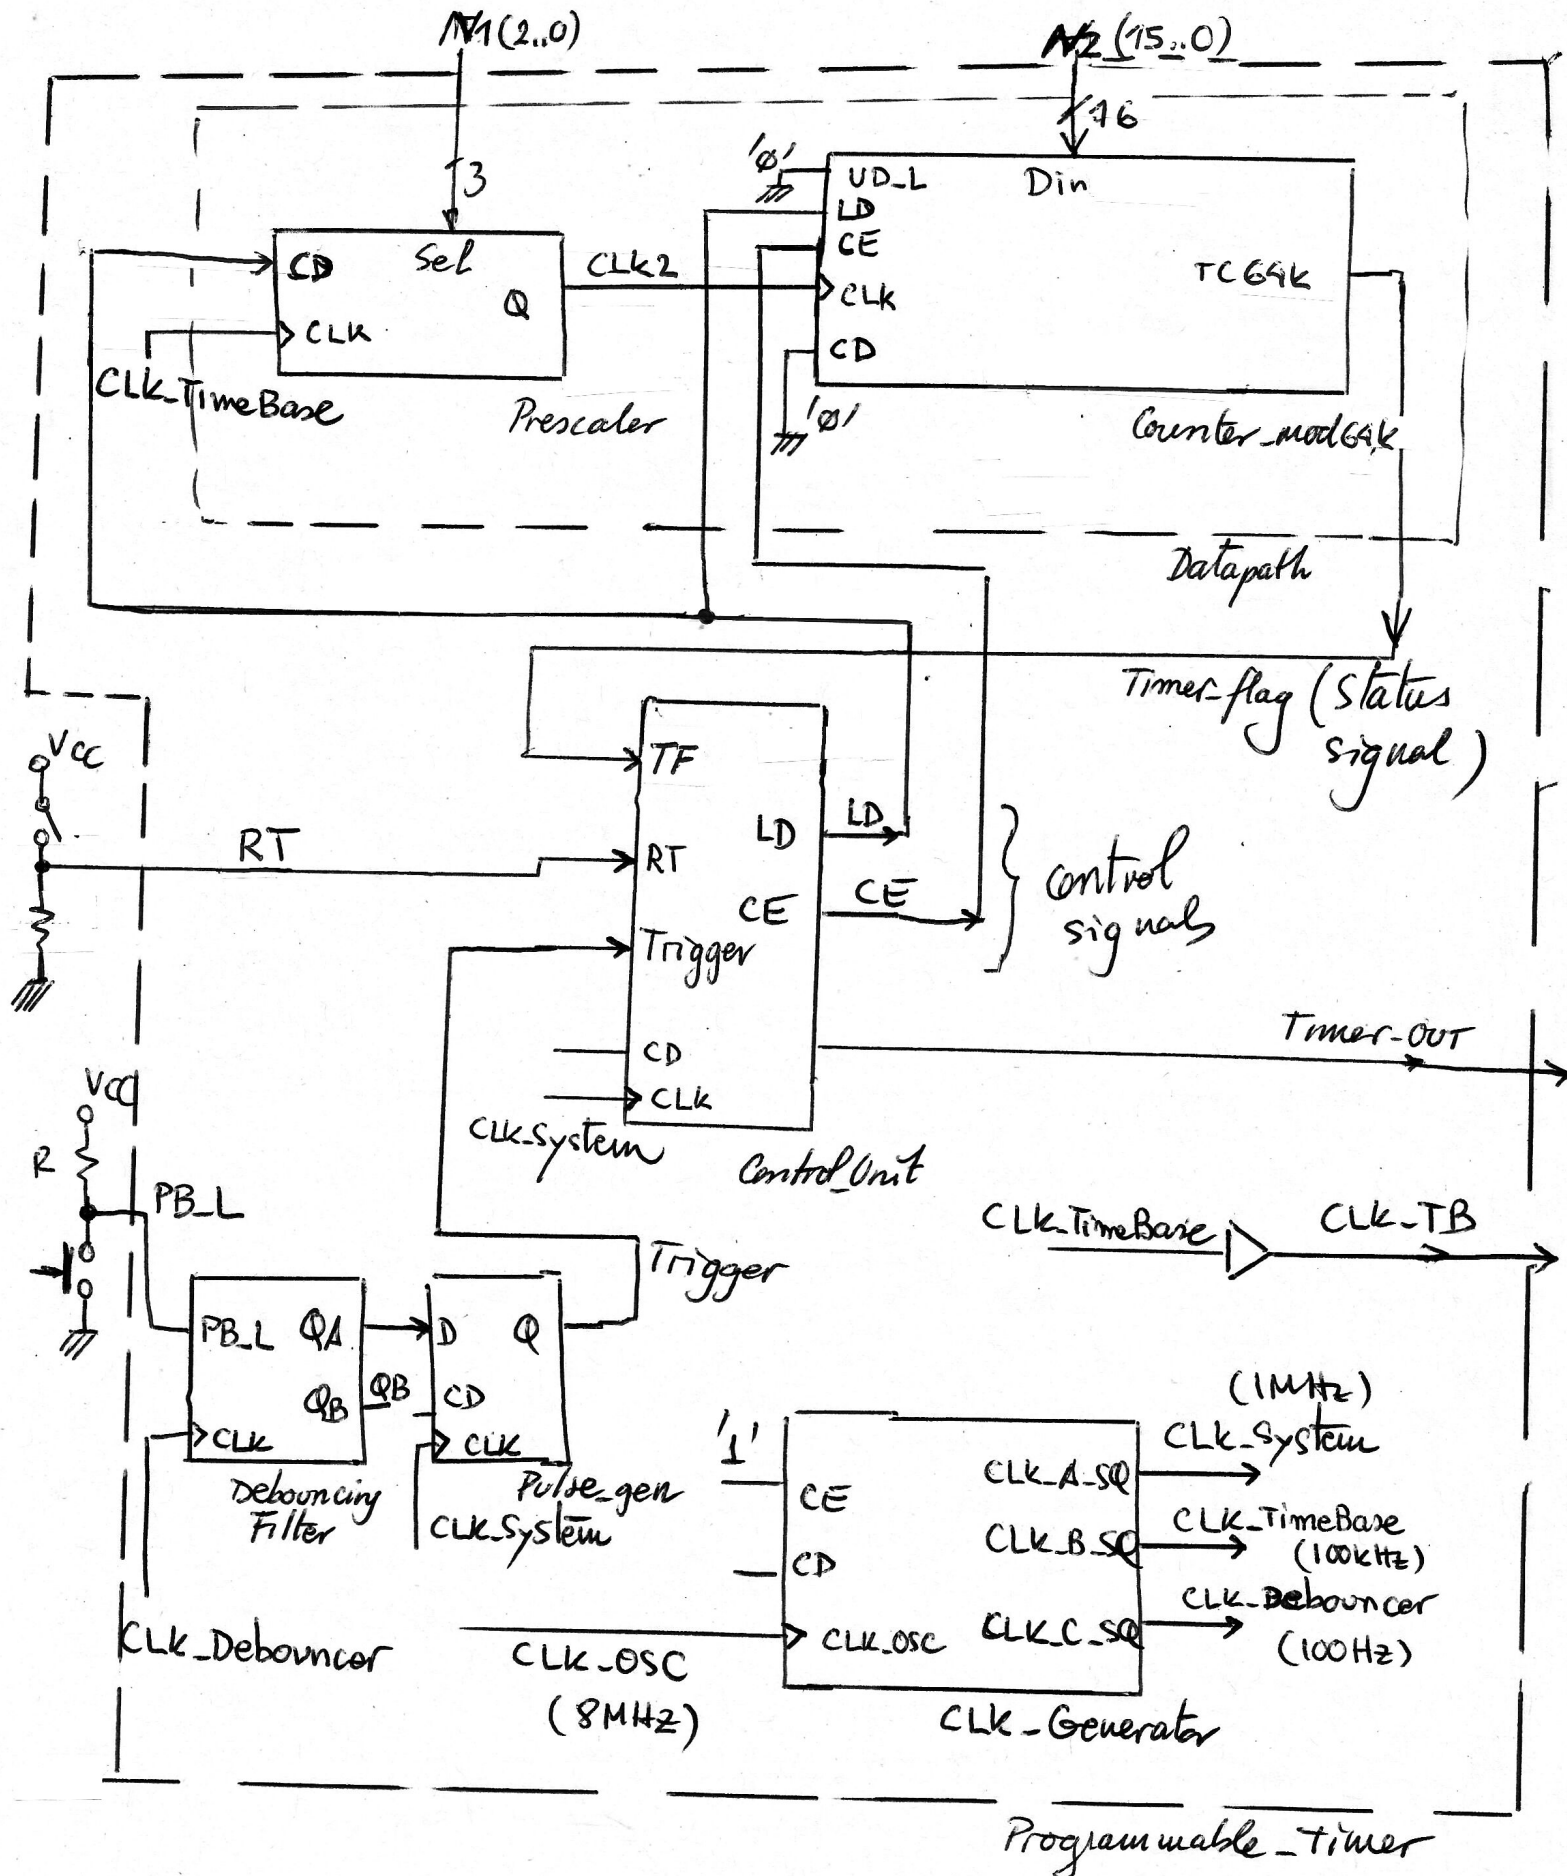 N1(2..0)
N2(15..0)
3
16
'0'
UD_L
Din
LD
CE
CLK
CD
TC64k
'0'
Counter_mod64k
CD
Sel
Q
CLK
CLK2
CLK_TimeBase
Prescaler
Datapath
Timer_flag (Status
signal)
Vcc
RT
TF
RT
Trigger
CD
CLK
LD
CE
LD
CE
control
signals
Timer_OUT
CLK_System
Control_Unit
Vcc
R
PB_L
CLK_TimeBase
CLK_TB
Trigger
PB_L
QA
QB
CLK
QB
D
Q
CD
CLK
Debouncing
Filter
Pulse_gen
CLK_System
CLK_Debouncer
'1'
CE
CD
CLK_OSC
CLK_A_SQ
CLK_B_SQ
CLK_C_SQ
(1MHz)
CLK_System
CLK_TimeBase
(100kHz)
CLK_Debouncer
(100Hz)
CLK_OSC
(8MHz)
CLK_Generator
Programmable_Timer